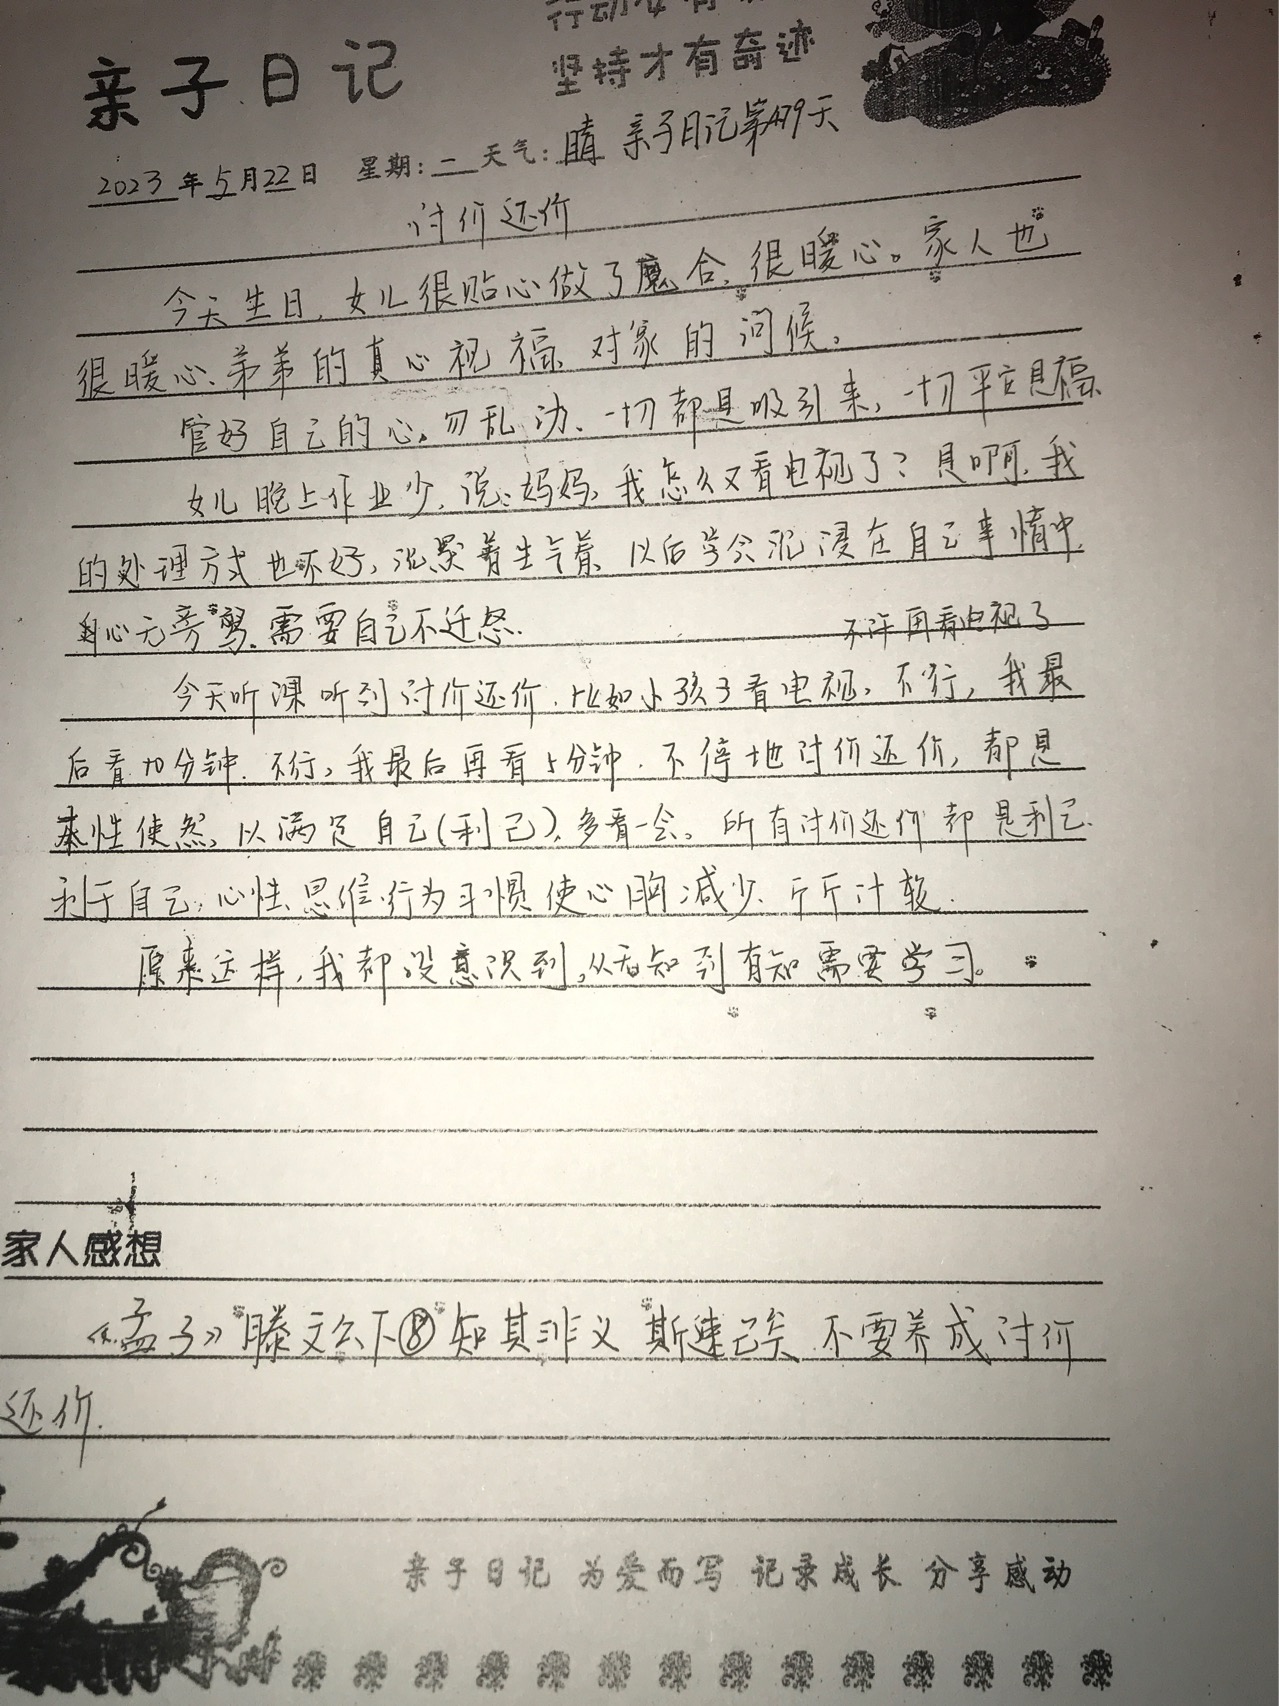 行动
坚持才有奇迹
亲子日记
2023年5月22日 星期:二 天气:晴 亲子日记第479天
讨价还价
今天生日,女儿很贴心做了魔合,很暖心。家人也
很暖心、弟弟的真心祝福、对家的问候。
管好自己的心。勿乱动、一切都是吸引来,一切平安是福、
女儿晚上作业少,说:妈妈,我怎么又看电视了?是啊,我
的处理方式也不好,沉默着生气着、以后学会沉浸在自己事情中,
心无旁骛、需要自己不迁怒.
不许再看电视了
今天听课听到讨价还价.比如小孩子看电视,不行,我最
后看10分钟.不行,我最后再看5分钟.不停地讨价还价,都是
本性使然,以满足自己(利己)、多看一会。所有讨价还价都是利己.
利于自己,心性、思维、行为习惯使心胸减少、斤斤计较.
原来这样,我都没意识到,从无知到有知需要学习。
家人感想
《孟子》滕文公下⑧知其非义 斯速已矣 不要养成讨价
还价.
亲子日记 为爱而写 记录成长 分享感动